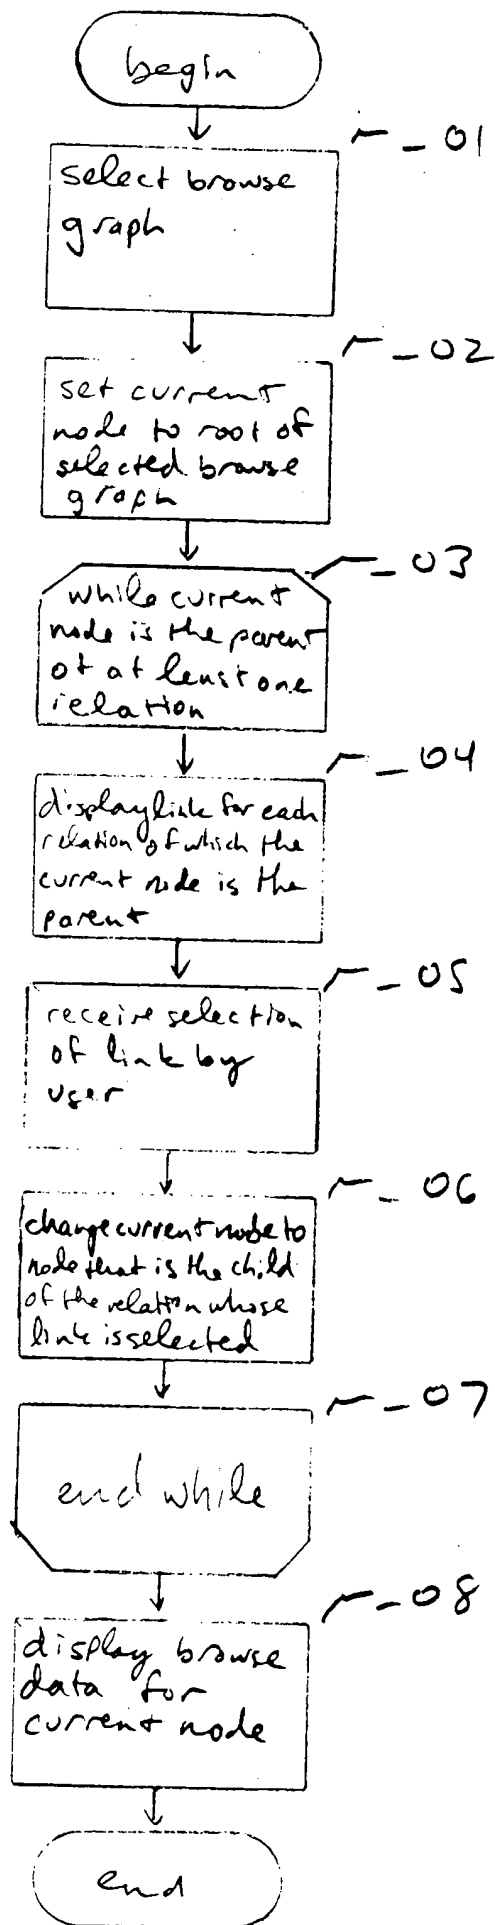 begin
_ 01
select browse
graph
_ 02
set current
node to root of
selected browse
graph
_ 03
while current
node is the parent
of at least one
relation
_ 04
display link for each
relation of which the
current node is the
parent
_ 05
receive selection
of link by
user
_ 06
change current node to
node that is the child
of the relation whose
link is selected
_ 07
end while
_ 08
display browse
data for
current node
end